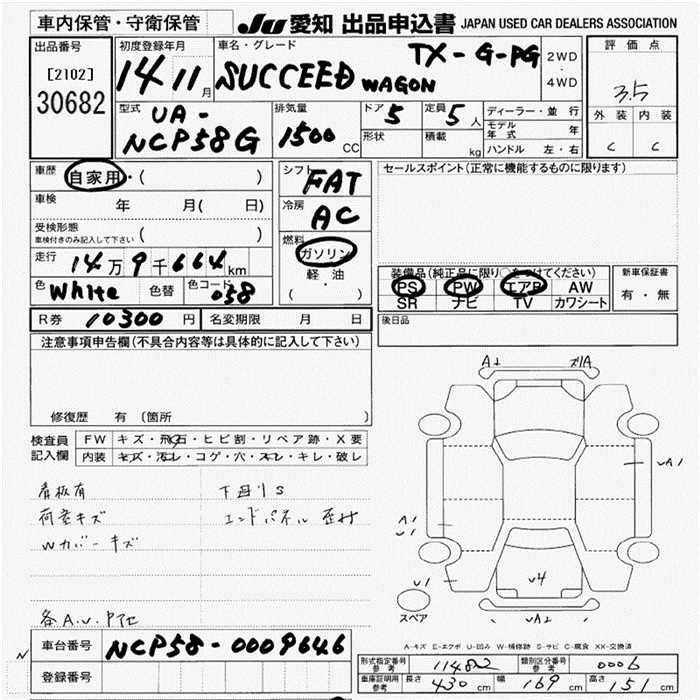 車内保管・守衛保管
JU 愛知 出品申込書 JAPAN USED CAR DEALERS ASSOCIATION
出品番号
[2102]
30682
初度登録年月
14 11月
車名・グレード
SUCCEED WAGON
TX-G-PG
2WD
・
4WD
評価点
3.5
外装 内装
C C
型式
UA-
NCP58G
排気量
1500 CC
ドア 5
定員 5人
形状
積載 kg
ディーラー・並行
モデル年式 年
ハンドル 左・右
車歴
自家用・( )
車検 年 月( 日)
受検形態
車検付きのみ記入して下さい ( )
走行 14万9千664km
色 White 色替 色コード 058
シフト
FAT
冷房
AC
燃料
ガソリン
軽・油
( )
セールスポイント(正常に機能するものに限ります)
装備品(純正品に限り○をつけてください)
PS PW エアB AW
SR ナビ TV カワシート
新車保証書
有・無
後日品
R券 10300円 名変期限 月 日
注意事項申告欄(不具合内容等は具体的に記入して下さい)
修復歴 有 (箇所 )
検査員記入欄
FW キズ・飛石・ヒビ割・リペア跡・X要
内装 キズ・汚レ・コゲ・穴・スレ・キレ・破レ
看板有
荷室キズ
Wカバーキズ
下回りS
エンドパネル
各A.U.P他
A1
ズリA
UA1
A1
U1
U1
U4
UA2
スペア
A-キズ E-エクボ U-凹み W-補修跡 S-サビ C-腐食 XX-交換済
N
車台番号 NCP58-0009646
登録番号
形式指定番号 参考 11482
類別区分番号 参考 0006
車庫証明用 参考 長さ 430cm 幅 169cm 高さ 151cm